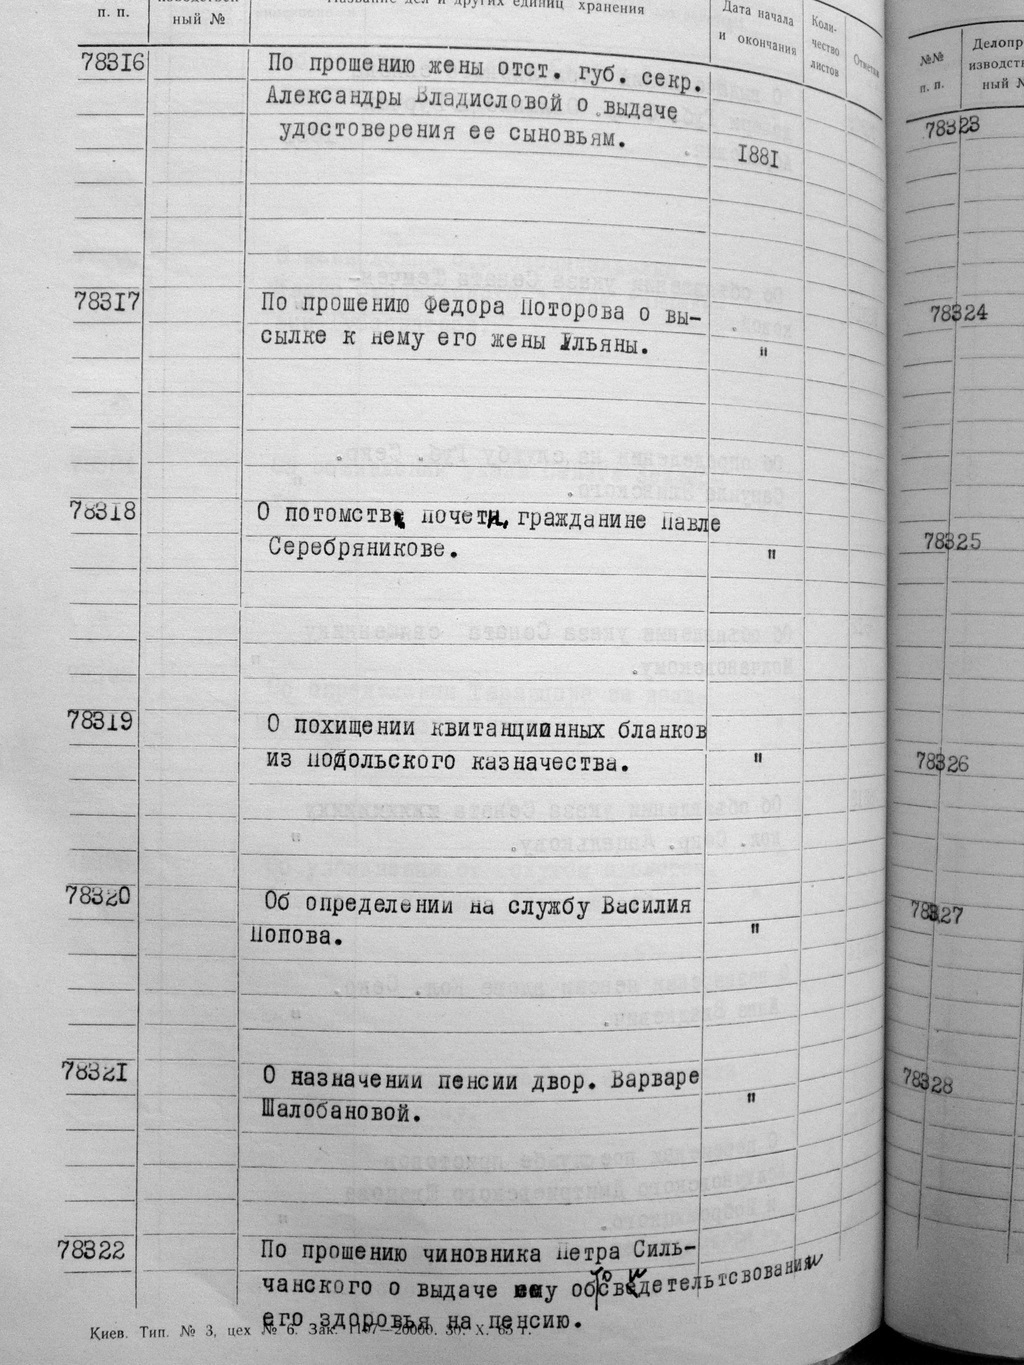 п. п.
ный №
Название дел и других единиц хранения
Дата начала
и окончания
Коли-
чество
листов
Отметки
78316
По прошению жены отст. губ. секр.
Александры Владисловой о выдаче
удостоверения ее сыновьям.
1881
78317
По прошению Федора Поторова о вы-
сылке к нему его жены Ульяны.
"
78318
О потомств. почетн. гражданине Павле
Серебряникове.
"
78319
О похищении квитанциинных бланков
из Подольского казначества.
"
78320
Об определении на службу Василия
Попова.
"
78321
О назначении пенсии двор. Варваре
Шалобановой.
"
78322
По прошению чиновника Петра Силь-
чанского о выдаче ему об освидетельтсвовании
его здоровья на пенсию.
Киев. Тип. № 3, цех № 6. Зак. 1107—20000. 30. X. 65 г.
№№
п. п.
Делопр
изводств
ный №
78323
78324
78325
78326
78327
78328